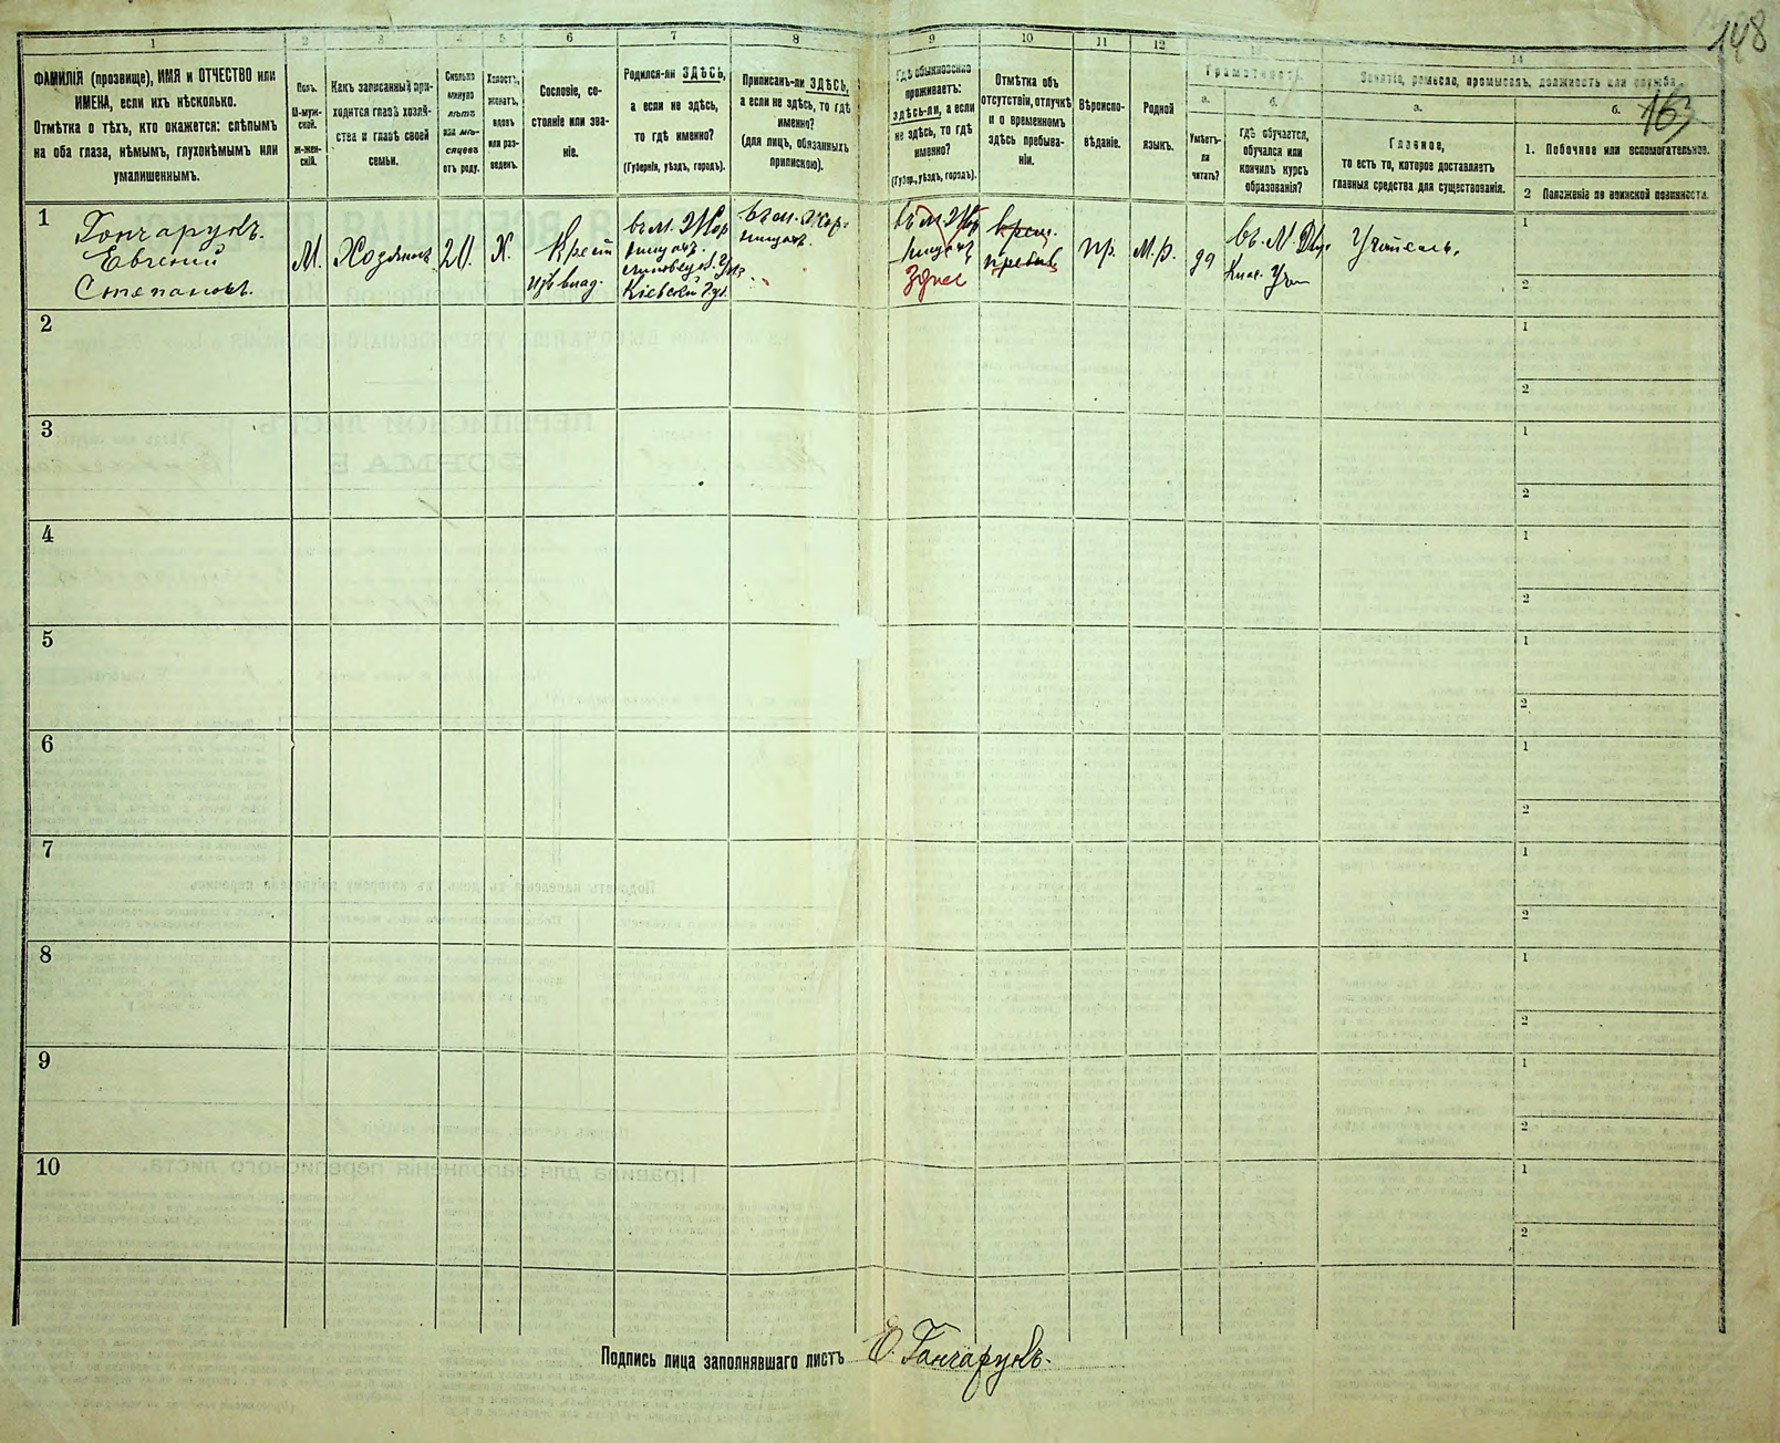 148
163
1
2
3
4
5
6
7
8
9
10
11
12
13
14
ФАМИЛІЯ (прозвище), ИМЯ и ОТЧЕСТВО или
ИМЕНА, если ихъ нѣсколько.
Отмѣтка о тѣхъ, кто окажется: слѣпымъ
на оба глаза, нѣмымъ, глухонѣмымъ или
умалишеннымъ.
Полъ.
М-муж-
ской.
Ж-жен-
скій.
Какъ записанный при-
ходится главѣ хозяй-
ства и главѣ своей
семьи.
Сколько
минуло
лѣтъ
или мѣ-
сяцевъ
отъ роду.
Холостъ,
женатъ,
вдовъ
или раз-
веденъ.
Сословіе, со-
стояніе или зва-
ніе.
Родился-ли ЗДѢСЬ,
а если не здѣсь,
то гдѣ именно?
(Губернія, уѣздъ, городъ).
Приписанъ-ли ЗДѢСЬ,
а если не здѣсь, то гдѣ
именно?
(для лицъ, обязанныхъ
припискою).
Гдѣ обыкновенно
проживаетъ:
здѣсь-ли, а если
не здѣсь, то гдѣ
именно?
(Губер., уѣздъ, городъ).
Отмѣтка объ
отсутствіи, отлучкѣ
и о временномъ
здѣсь пребыва-
ніи.
Вѣроиспо-
вѣданіе.
Родной
языкъ.
Грамотность.
а.
б.
Умѣетъ-
ли
читать?
гдѣ обучается,
обучался или
кончилъ курсъ
образованія?
Занятія, ремесло, промыселъ, должность или служба.
а.
б.
Главное,
то есть то, которое доставляетъ
главныя средства для существованія.
1. Побочное или вспомогательное.
2 Положеніе по воинской повинности.
1
Гончарукъ.
Евгеній
Степановъ.
М.
Хозяинъ
20.
Х.
Крест
изъ влад.
въ м.
Кіевской Губ.
въ м.
въ м.
Здѣсь
Пр.
М.р.
да
въ М.
Учитель.
1
2
2
1
2
3
1
2
4
1
2
5
1
2
6
1
2
7
1
2
8
1
2
9
1
2
10
1
2
Подпись лица заполнявшаго листъ Е. Гончарукъ.